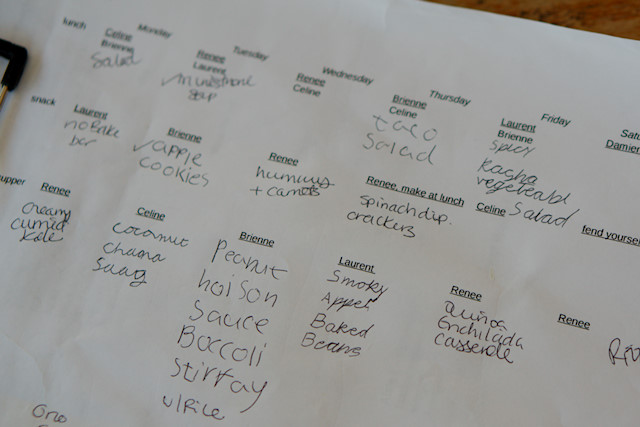 lunch
Monday
Celine
Brienne
Salad
Tuesday
Renee
Laurent
✓ minestrone
soup
Wednesday
Renee
Celine
Thursday
Brienne
Celine
taco
Salad
Friday
Laurent
Brienne
spicy
Kasha
vegeteabl
Salad
Satu
Damien
snack
Laurent
no Bake
bar
Brienne
✓ apple
cookies
Renee
hummus
+ carrots
Renee, make at lunch
spinach dip.
crackers
Celine
fend yourse
upper
Renee
creamy
curried
Kale
Celine
coconut
chana
saag
Brienne
peanut
hoison
sauce
Boccoli
stirfay
w/Rice
Laurent
Smoky
Appel
Baked
Beans
Renee
quinoa
Enchilada
casserole
Renee